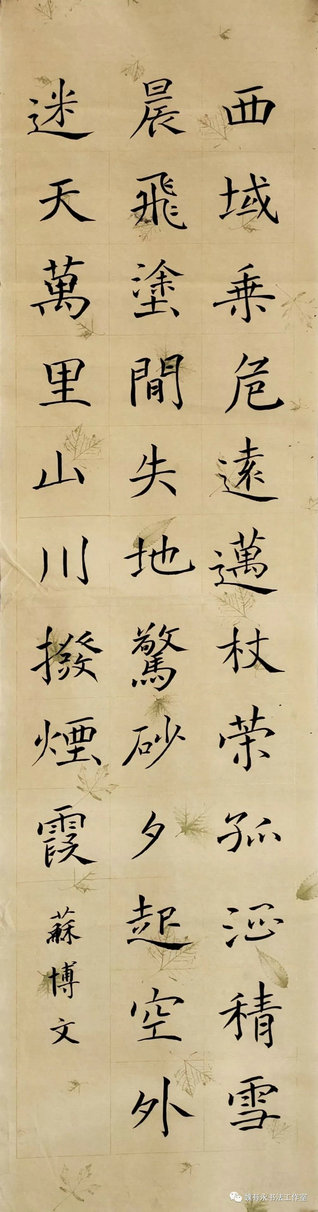 西域乘危遠邁杖策孤征積雪
晨飛塗間失地驚砂夕起空外
迷天萬里山川撥煙霞
蘇博文
书法工作室